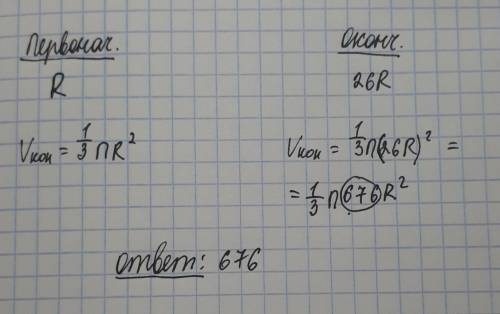 Первонач.
R
Vкон = 1/3 ПR²
Оконч.
26R
Vкон = 1/3 П(26R)² =
= 1/3 П 676 R²
Ответ: 676